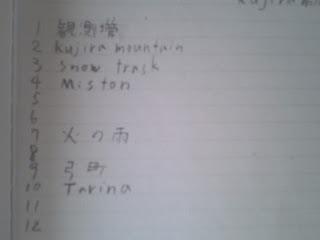 Kujira m
1 観測塔
2 Kujira mountain
3 snow track
4 Miston
5
6
7 火の雨
8
9 弓町
10 Tarina
11
12